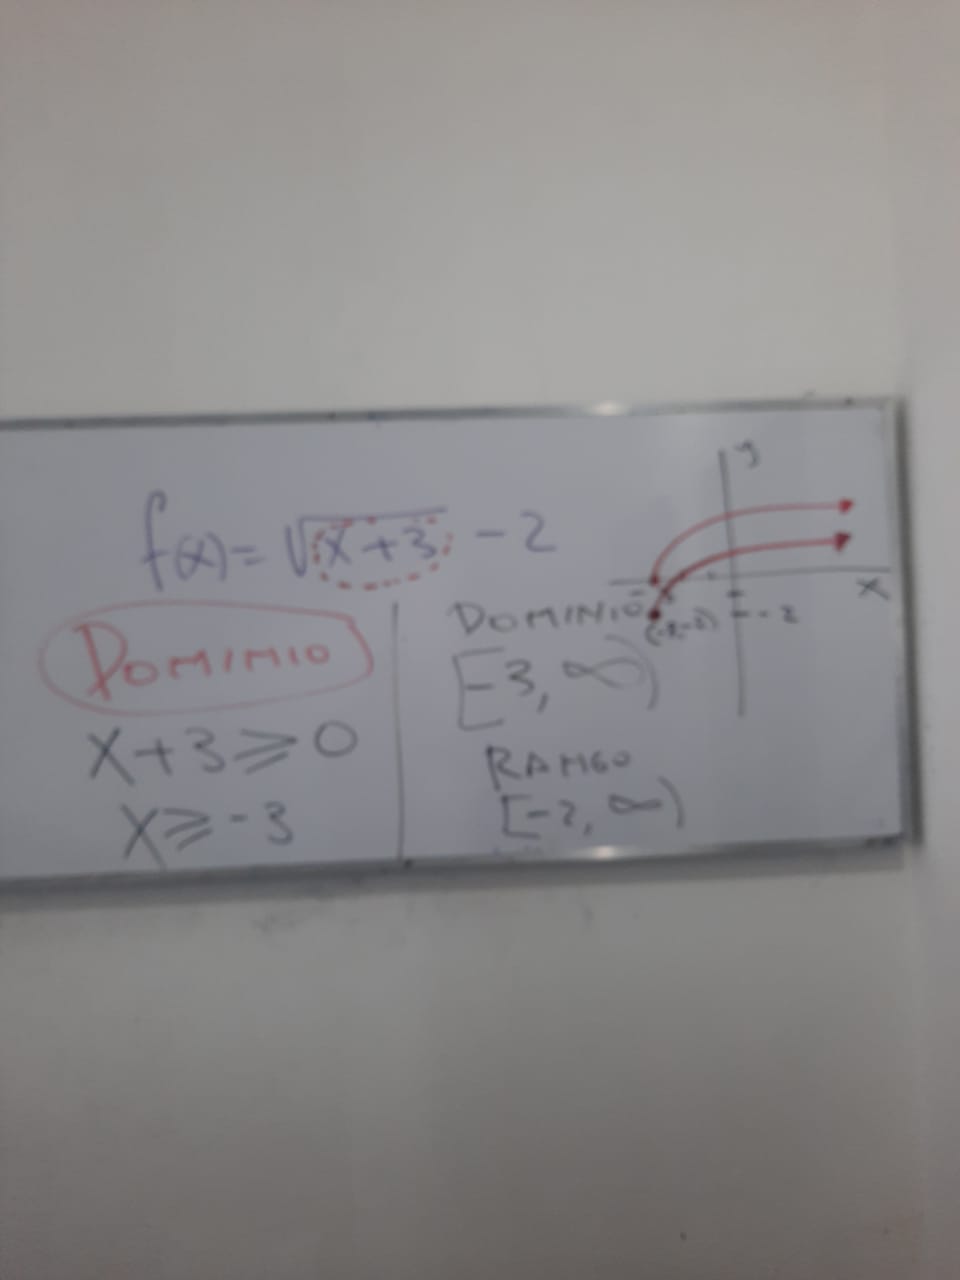 f(x) = √(x+3) - 2
DOMINIO
x+3 ≥ 0
x ≥ -3
DOMINIO
[-3, ∞)
RANGO
[-2, ∞)
y
x
-2